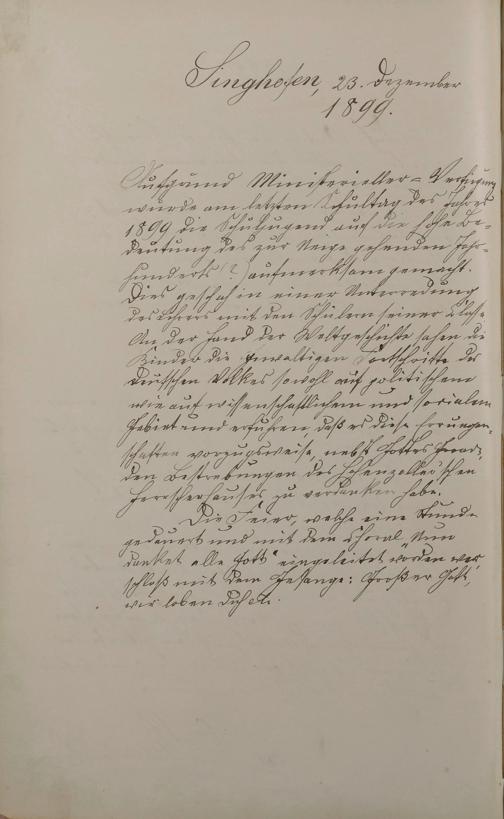 Singhofen, 23. Dezember
1899.
Aufgrund Ministerieller = Verfügung
wurde am letzten Schultag des Jahres
1899 die Schuljugend auf die hohe Be-
deutung des zur Neige gehenden Jahr-
hunderts (?) aufmerksam gemacht.
Dies geschah in einer Unterredung
des Lehrers mit den Schülern seiner Klasse.
An der Hand der Weltgeschichte sahen die
Kinder die gewaltigen Fortschritte des
deutschen Volkes sowohl auf politischem
wie auf wissenschaftlichem und sozialem
Gebiet und erfuhren, daß es diese Errungen-
schaften vorzugsweise, nebst Gottes Gnade,
den Bestrebungen des Hohenzoller'schen
Herrscherhauses zu verdanken habe.
Die Feier, welche eine Stunde
gedauert und mit dem Choral „Nun
danket alle Gott" eingeleitet worden war
schloß mit dem Gesange: Großer Gott,
wir loben dich etc.